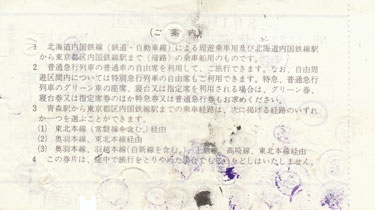 (ご案内)
1 北海道内国鉄線(鉄道・自動車線)による周遊乗車用及び北海道内国鉄線駅
から東京都区内国鉄線駅まで(帰路)の乗車船用のものです。
2 普通急行列車の普通車の自由席を利用して、ご旅行できます。なお、自由周
遊区間内については特別急行列車の自由席もご利用できます。特急、普通急
行列車のグリーン車の座席、寝台又は指定席を利用される場合は、グリーン券、
寝台券又は指定席券のほか特急券又は普通急行券もお求めください。
3 青森駅から東京都区内国鉄線駅までの乗車経路は、次に掲げる経路のいずれ
か一つを選ぶことができます。
(1) 東北本線(常磐線を含む。)経由
(2) 奥羽本線、東北本線経由
(3) 奥羽本線、羽越本線(白新線を含む。)、上越線、高崎線、東北本線経由
4 この券片は、途中で旅行をとりやめた場合でも払いもどしはいたしません。